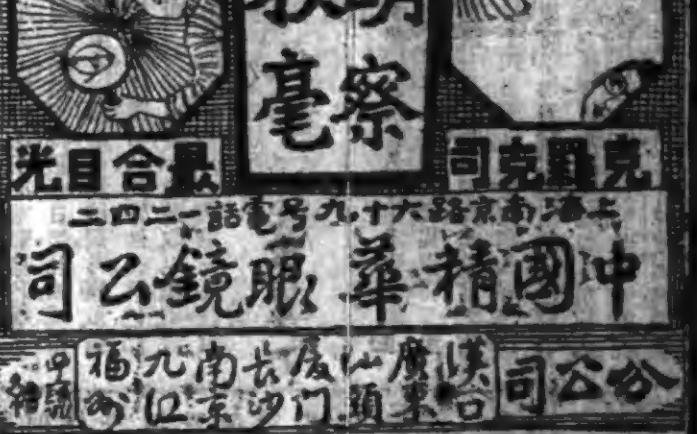 明察
秋毫
克羅克司
最合目光
上海南京路六十九号電話一二四二
中國精華眼鏡公司
分公司
漢口 廣東 汕頭 厦门 長沙 南京 九江 福州